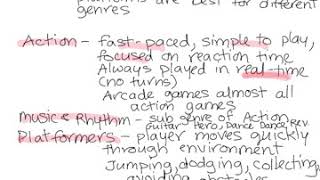 platforms are best for different
genres
Action – fast-paced, simple to play,
focused on reaction time
Always played in real-time
(no turns)
Arcade games almost all
action games
Music & Rhythm – sub genre of Action
Guitar Hero, Dance Dance Rev.
Platformers – player moves quickly
through environment
Jumping, dodging, collecting,
avoiding obstacles